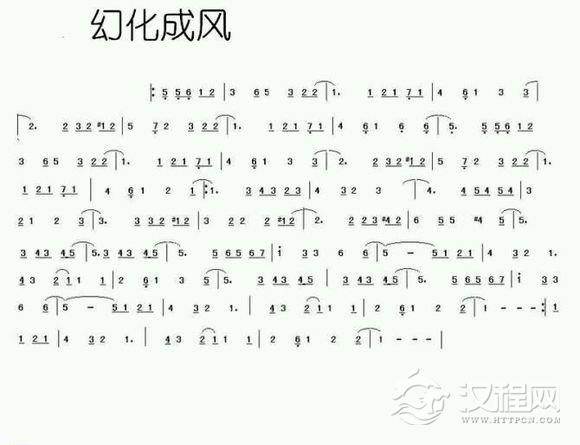 幻化成风
5 5 6 1 2 | 3 6 5 3 2 2 | 1. 1 2 1 7 1 | 4 6 1 3 3 |
2. 2 3 2 #1 2 | 5 7 2 3 2 2 | 1. 1 2 1 7 1 | 4 6 1 6 6 | 5. 5 5 6 1 2
3 6 5 3 2 2 | 1. 1 2 1 7 1 | 4 6 1 3 3 | 2. 2 3 2 #1 2 | 5 7 2 3 2 2 | 1.
1 2 1 7 1 | 4 6 1 2 1 :| 1. 3 4 3 2 3 | 4 3 2 3 4 | 4. 4 5 4 5 4 | 3
2 1 2 3 | 3. 2 3 2 #1 2 | 3 2 2 2 #1 | 2. 2 2 3 #4 2 | 6 5 #4 5 | 5.
3 4 3 4 5 | 5. 3 4 3 4 5 | 5. 5 6 5 6 7 | i 3 3 6 6 | 5 - 5 1 2 1 | 4 3 2 1. |
4 3 2 1 1 | 2 6 1 3 | 5. 3 4 3 | 3 4 3 4 5 | 5. 5 6 5 6 7 | i 3 3
6 6 | 5 - 5 1 2 1 | 4 3 2 1. | 4 3 2 1 1 | 2 6 1 2 2 | 1 - - - :| 1
1 2 1 | 4 3 2 1. | 4 3 2 1 1 | 2 6 1 2 2 | 1 - - - |
汉程网
WWW.HTTPCN.COM